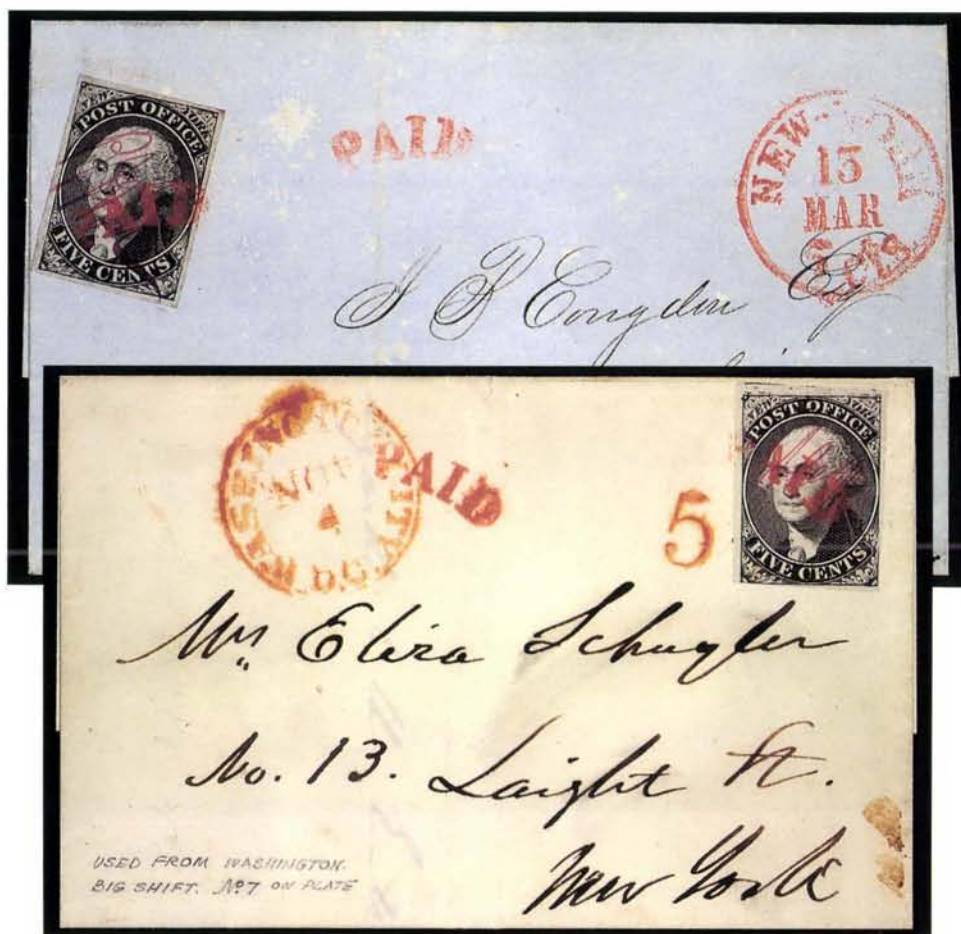 NEW YORK
POST OFFICE
FIVE CENTS
PAID
PAID
NEW-YORK
13
MAR
5 cts
J P Congdon Esq
WASHINGTON CITY
NOV
4
D.C.
PAID
5
NEW YORK
POST OFFICE
FIVE CENTS
PAID
Mrs Eliza Schuyler
No. 13. Laight St.
New York
USED FROM WASHINGTON.
BIG SHIFT. No 7 ON PLATE